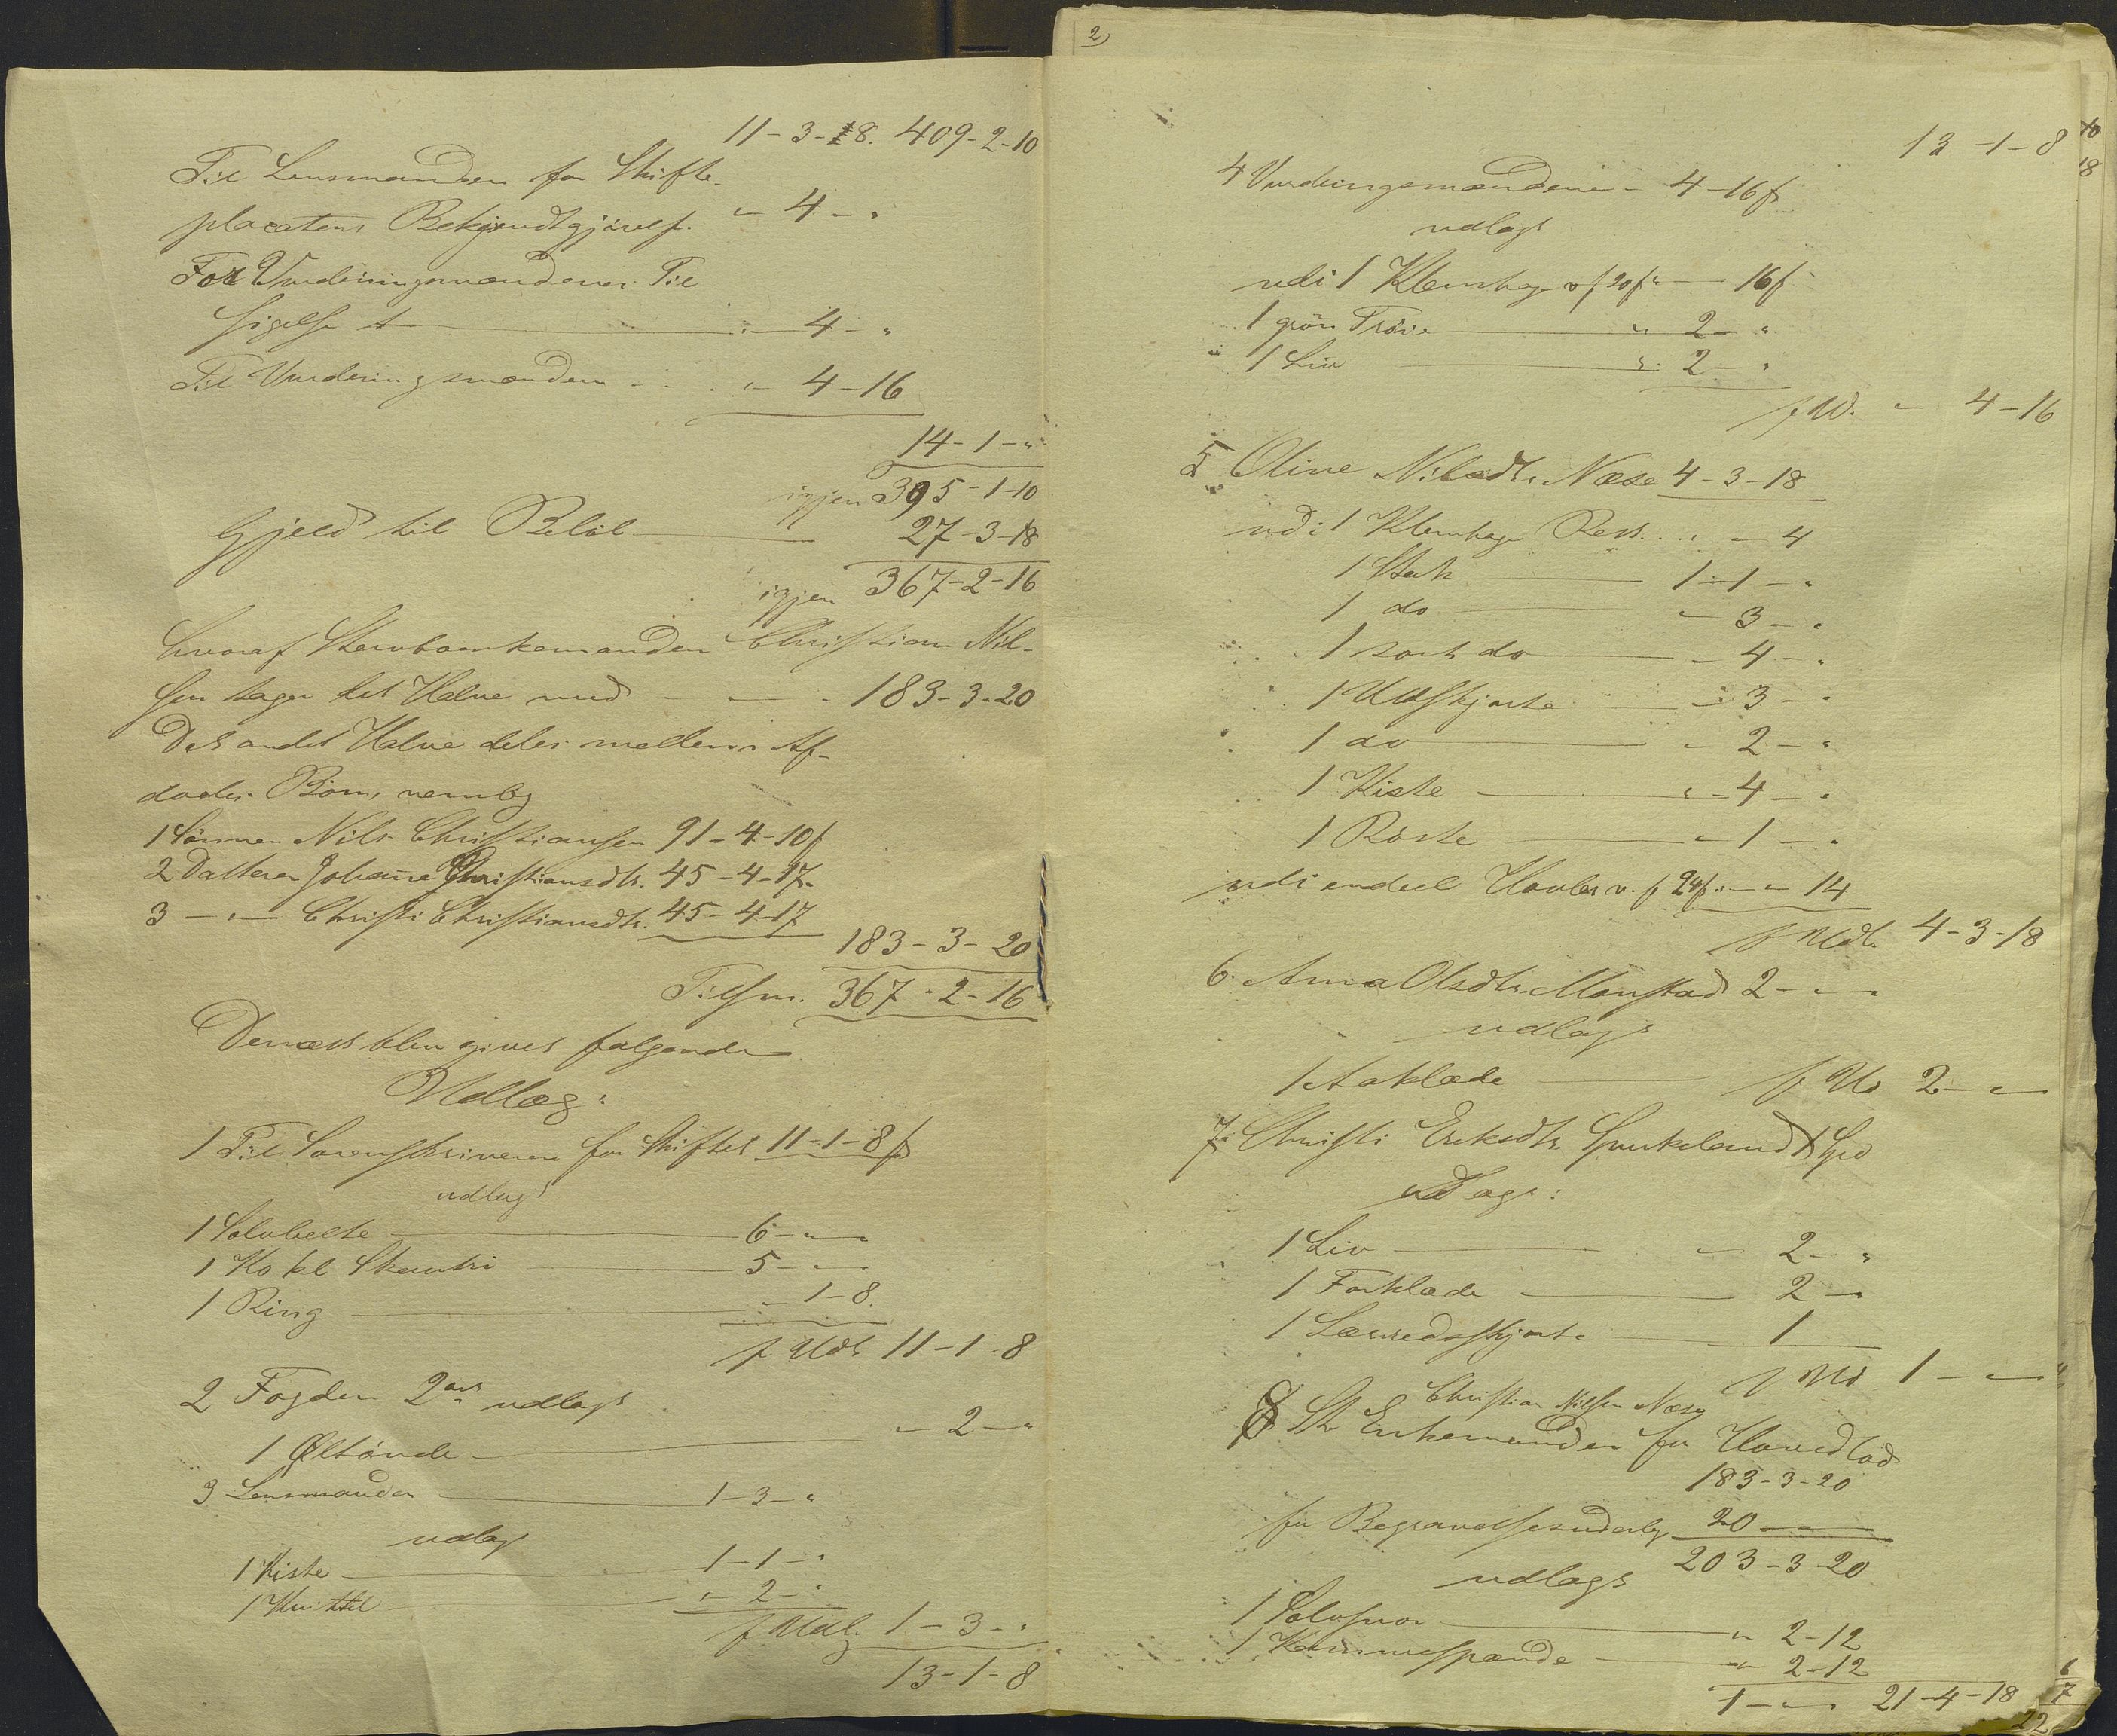 11-3-18. 409-2-10
Til Lensmanden for Skifte-
placatens Bekjendtgjörelse " 4 - "
For Vurderingsmændenes Til
sigelse " 4 - "
Til Vurderingsmændene " 4-16
14-1-"
igjen 395-1-10
Gjeld til Belöb 27-3-18
igjen 367-2-16
hvoraf Stervboenkemanden Christian Nil-
sen tager det Halve med 183-3-20
Det andet Halve deles mellem Af-
dödes Börn, nemlig
1 Sönnen Nils Christiansen 91-4-10 s
2 Datteren Johanne Christiansdtr. 45-4-17
3 -"- Christi Christiansdtr. 45-4-17
183-3-20
Tilsm. 367-2-16
Dernæst blev givet fölgende
Udlæg:
1 Til Sorenskriveren for Skiftet 11-1-8 s
udlagt
1 Sölvbelte 6-"-"
1 Ko kl 5-"-"
1 Ring "-1-8
f Udl 11-1-8
2 Fogden 2 ort udlagt
1 Öltönde "-2-"
3 Lensmanden 1-3-"
udlagt
1 Kiste 1-1-"
1 "-2-"
f Udl. 1-3-"
13-1-8
2)
13-1-8
4 Vurderingsmændene - 4-16 s
udlagt
udi 1 Klemhage v f 20 s " - 16 s
1 grön Tröie " 2 - "
1 Liv " 2 - "
f Ud. " 4-16
5 Oline Nilsdtr. Næse 4-3-18
udi 1 Klemhage Rest " - 4
1 Stak 1-1-"
1 do " 3 - "
1 sort do " 4 - "
1 Uldskjorte " 3 - "
1 do " 2 - "
1 Kiste " 4 - "
1 Röste " 1 - "
udi endeel v. f 24 s " - " 14
f Udl. 4-3-18
6. Anna Olsdtr. Monstad 2-"-"
udlagt
1 Aaklæde f Ud 2-"-"
7. Christi Eriksdtr. 1 Spd
udlagt:
1 Liv " 2 - "
1 Forklæde 2 -
1 Lærredsskjorte 1
f Ud 1-"-"
Christian Nilsen Næse
8 St. Enkemanden for Hovedlod
183-3-20
for Begravelsesudlæg 20-"-"
203-3-20
udlagt
1 " 2-12
1 " 2-12
1-"-" 21-4-18